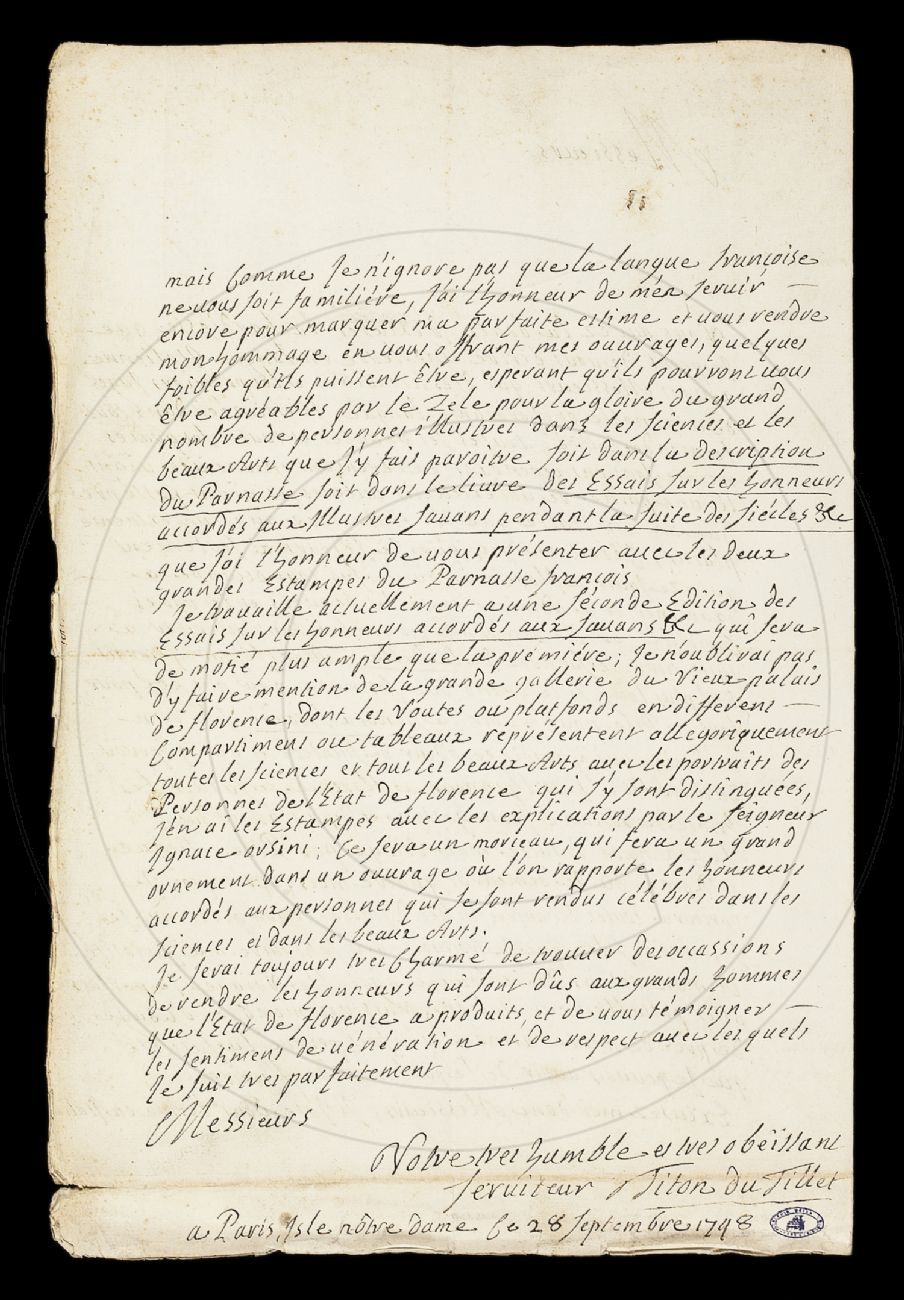 mais comme je n'ignore pas que la langue françoise
ne vous soit familiére, j'ai l'honneur de m'en servir
encore pour marquer ma parfaite estime et vous rendre
mon hommage en vous offrant mes ouvrages, quelques
foibles qu'ils puissent être, esperant qu'ils pourront vous
être agréables par le Zele pour la gloire du grand
nombre de personnes illustres dans les sciences et les
beaux Arts que j'y fais paroitre soit dans la description
du Parnasse soit dans le livre des Essais sur les honneurs
accordés aux Illustres savans pendant la suite des siécles &c
que j'ai l'honneur de vous présenter avec les deux
grandes Estampes du Parnasse françois
Je travaille actuellement a une séconde Edition des
Essais sur les honneurs accordés aux savans &c qui sera
de motié plus ample que la premiére; je n'oublirai pas
d'y faire mention de la grande gallerie du Vieux palais
de florence, dont les Voutes ou platfonds en differens
Compartimens ou tableaux représentent allegoriquement
toutes les sciences et tous les beaux Arts avec les portraits des
Personnes de l'Etat de florence qui s'y sont distinguées,
j'en ai les Estampes avec les explications par le seigneur
Ignace orsini; Ce sera un morceau, qui fera un grand
ornement dans un ouvrage où l'on rapporte les honneurs
accordés aux personnes qui se sont rendus célébres dans les
sciences et dans les beaux Arts.
Je serai toujours tres Charmé de trouver des occassions
de rendre les honneurs qui sont dûs aux grands hommes
que l'Etat de florence a produits, et de vous témoigner
les sentimens de vénération et de respect avec lesquels
Je suis tres parfaitement
Messieurs
Votre tres humble et tres obéissant
serviteur Titon du Tillet
a Paris, Isle nôtre dame Ce 28 septembre 1748